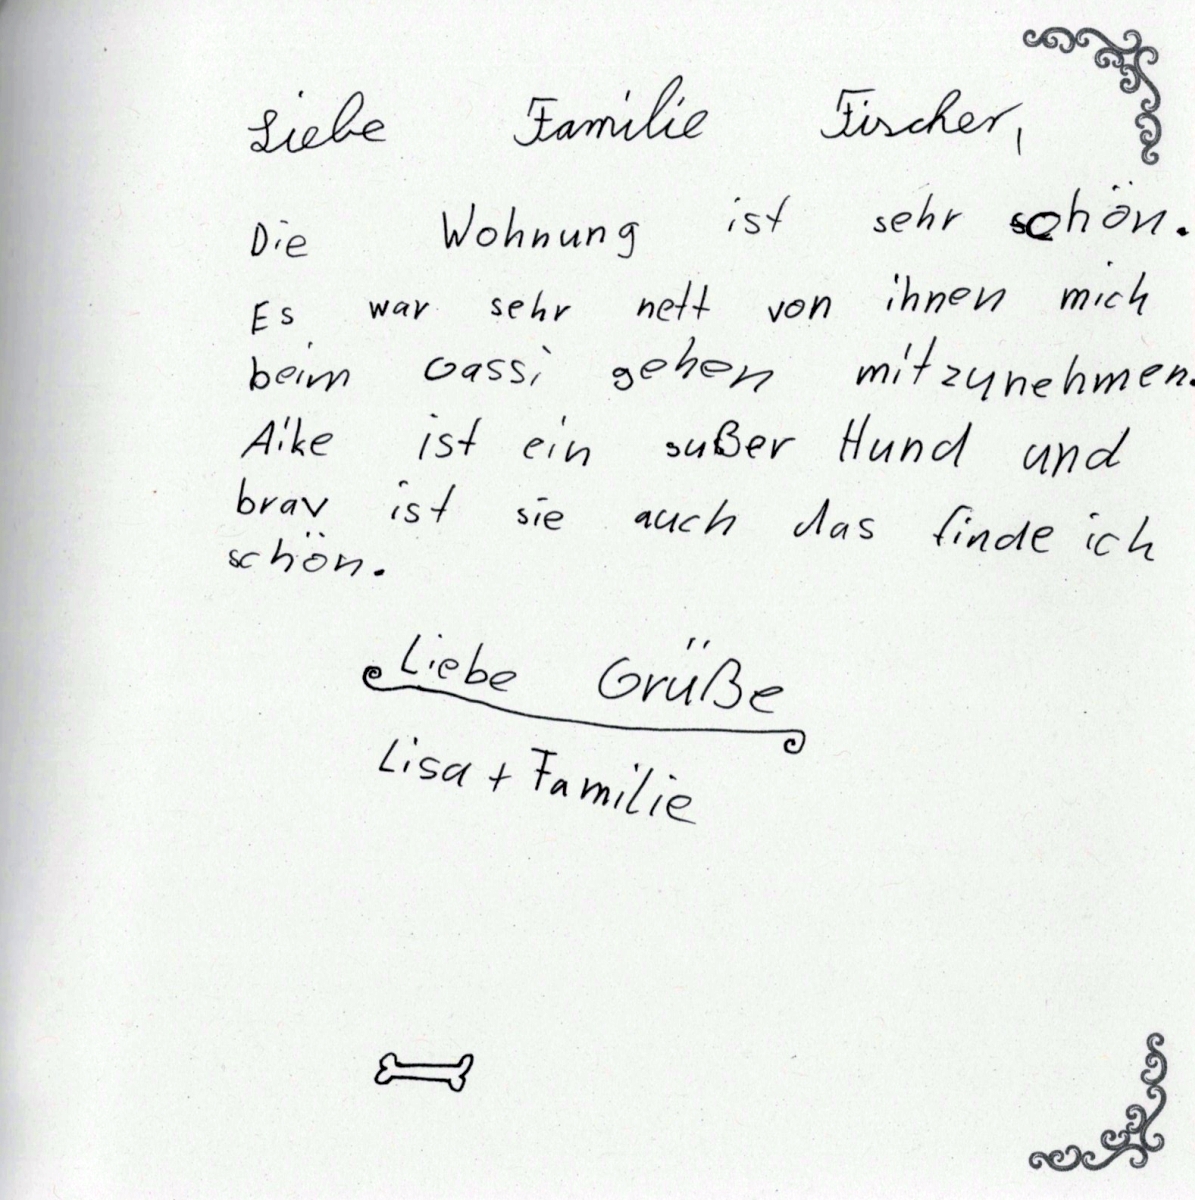 Liebe Familie Fischer,
Die Wohnung ist sehr schön.
Es war sehr nett von ihnen mich
beim Gassi gehen mitzunehmen.
Aike ist ein sußer Hund und
brav ist sie auch das finde ich
schön.
Liebe Grüße
Lisa + Familie